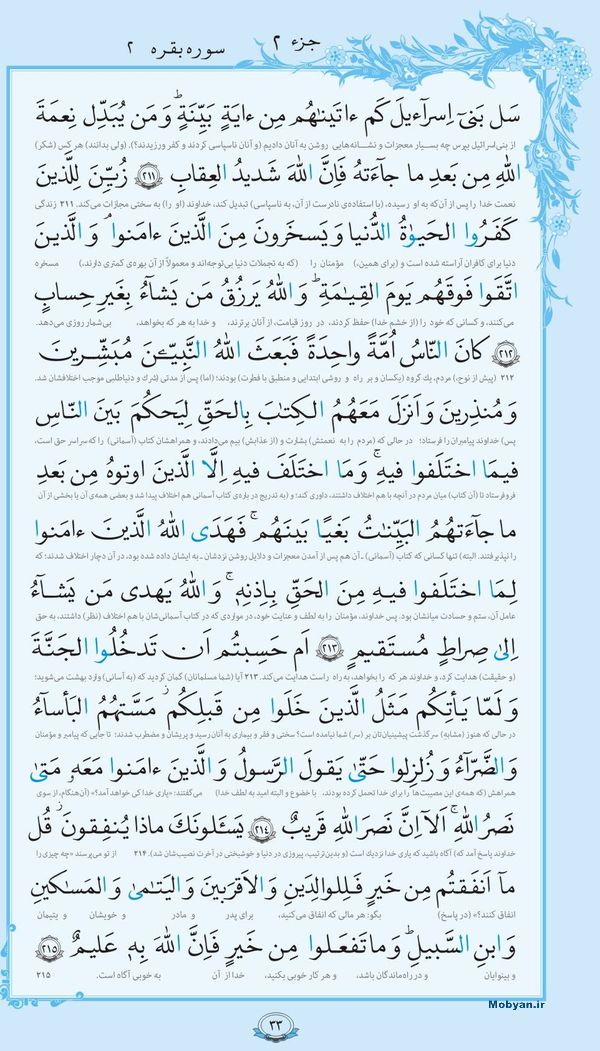 جزء ۲
سوره بقره ۲
سَل بَنىٓ اِسرآءيلَ كَم ءاتَينٰهُم مِن ءايَةٍ بَيِّنَةٍ ۗ وَ مَن يُبَدِّل نِعمَةَ
از بنی‌اسرائیل بپرس چه بسیار معجزات و نشانه‌هایی روشن به آنان دادیم (و آنان ناسپاسی کردند و کفر ورزیدند؟). (ولی بدانند) هر کس (شکر)
اللّٰهِ مِن بَعدِ ما جآءَتهُ فَاِنَّ اللّٰهَ شَديدُ العِقابِ ۲۱۱ زُيِّنَ لِلَّذينَ
نعمت خدا را پس از آن‌که به او رسیده، (با استفاده‌ی نادرست از آن، به ناسپاسی) تبدیل کند، خداوند (او را) به سختی مجازات می‌کند. ۲۱۱ زندگی
كَفَرُوا الحَيوٰةُ الدُّنيا وَ يَسخَرونَ مِنَ الَّذينَ ءامَنوا ۘ وَ الَّذينَ
دنیا برای کافران آراسته شده است و (برای همین،) مؤمنان را (که به تجملات دنیا بی‌توجه‌اند و معمولاً از آن بهره‌ی کمتری دارند،) مسخره
اتَّقَوا فَوقَهُم يَومَ القِيٰمَةِ ۗ وَ اللّٰهُ يَرزُقُ مَن يَشآءُ بِغَيرِ حِسابٍ
می‌کنند، و کسانی که خود را (از خشم خدا) حفظ کردند، در روز قیامت، از آنان برترند، و خدا به هر که بخواهد، بی‌شمار روزی می‌دهد.
۲۱۲ كانَ النّاسُ اُمَّةً واحِدَةً فَبَعَثَ اللّٰهُ النَّبِيّٖنَ مُبَشِّرينَ
۲۱۲ (پیش از نوح،) مردم، یک گروه (یکسان و بر راه و روشی ابتدایی و منطبق با فطرت) بودند؛ (اما) پس از مدتی (شرک و دنیاطلبی موجب اختلافشان شد.
وَ مُنذِرينَ وَ اَنزَلَ مَعَهُمُ الكِتٰبَ بِالحَقِّ لِيَحكُمَ بَينَ النّاسِ
پس) خداوند پیامبران را فرستاد؛ در حالی که (مردم را به نعمتش) بشارت و (از عذابش) بیم می‌دادند، و همراهشان کتاب (آسمانی) را که سراسر حق است،
فيمَا اختَلَفوا فيهِ ۚ وَ مَا اختَلَفَ فيهِ اِلَّا الَّذينَ اوتوهُ مِن بَعدِ
فروفرستاد تا (آن کتاب) میان مردم در آنچه با هم اختلاف داشتند، داوری کند؛ و (به تدریج در باره‌ی کتاب آسمانی هم اختلاف پیدا شد و بعضی همه‌ی آن یا بخشی از آن
ما جآءَتهُمُ البَيِّنٰتُ بَغيًا بَينَهُم ۖ فَهَدَى اللّٰهُ الَّذينَ ءامَنوا
را نپذیرفتند. البته) تنها کسانی که کتاب (آسمانی) ـ آن هم پس از آمدن معجزات و دلایل روشن نزدشان ـ به ایشان داده شده بود، در آن دچار اختلاف شدند؛ که
لِمَا اختَلَفوا فيهِ مِنَ الحَقِّ بِاِذنِهٖ ۗ وَ اللّٰهُ يَهدى مَن يَشآءُ
عامل آن، ستم و حسادت میانشان بود. پس خداوند، مؤمنان را به لطف و عنایت خود، در مواردی که در کتاب آسمانی‌شان با هم اختلاف (نظر) داشتند، به حق
اِلىٰ صِراطٍ مُستَقيمٍ ۲۱۳ اَم حَسِبتُم اَن تَدخُلُوا الجَنَّةَ
(و حقیقت) هدایت کرد، و خداوند هر که را بخواهد، به راه راست هدایت می‌کند. ۲۱۳ آیا (شما مسلمانان) گمان کردید که (به آسانی) وارد بهشت می‌شوید؛
وَ لَمّا يَأتِكُم مَثَلُ الَّذينَ خَلَوا مِن قَبلِكُم ۖ مَسَّتهُمُ البَأسآءُ
در حالی که هنوز (مشابه) سرگذشت پیشینیان‌تان بر (سر) شما نیامده است؟ سختی و فقر و بیماری به آنان رسید و پریشان و مضطرب شدند؛ تا جایی که پیامبر و مؤمنان
وَ الضَّرّآءُ وَ زُلزِلوا حَتّىٰ يَقولَ الرَّسولُ وَ الَّذينَ ءامَنوا مَعَهٗ مَتىٰ
همراهش (که همه‌ی این مصیبت‌ها را برای خدا تحمل کرده بودند، با خضوع و البته امید به لطف خدا) می‌گفتند: «یاری خدا کی خواهد آمد؟» (آن‌هنگام، از سوی
نَصرُ اللّٰهِ ۗ اَلآ اِنَّ نَصرَ اللّٰهِ قَريبٌ ۲۱۴ يَسـَٔلونَكَ ماذا يُنفِقونَ ۖ قُل
خداوند پاسخ آمد که) آگاه باشید که یاری خدا نزدیک است (و بدین‌ترتیب، پیروزی در دنیا و خوشبختی در آخرت نصیب‌شان شد). ۲۱۴ از تو می‌پرسند «چه چیزی را
مآ اَنفَقتُم مِن خَيرٍ فَلِلوالِدَينِ وَ الاَقرَبينَ وَ اليَتامىٰ وَ المَساكينِ
انفاق کنند؟» (در پاسخ) بگو: هر مالی که انفاق می‌کنید، برای پدر و مادر و خویشان و یتیمان
وَ ابنِ السَّبيلِ ۗ وَ ما تَفعَلوا مِن خَيرٍ فَاِنَّ اللّٰهَ بِهٖ عَليمٌ ۲۱۵
و بینوایان و در راه‌ماندگان باشد، و هر کار خوبی بکنید، خدا از آن به خوبی آگاه است. ۲۱۵
Mobyan.ir
۳۳